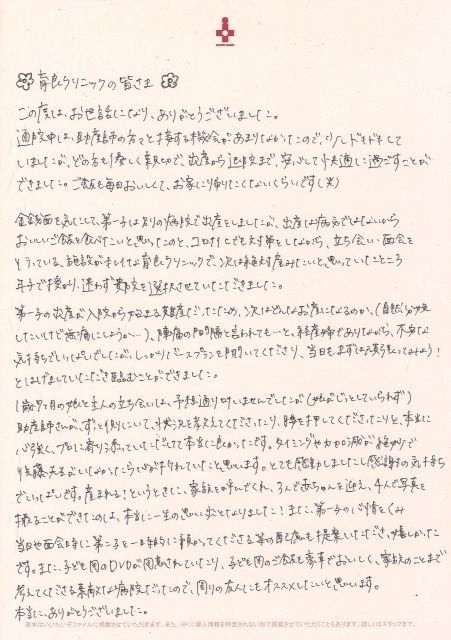 育良クリニックの皆さま
この度は、お世話になり、ありがとうございました。
通院中は、助産師の方々と接する機会があまりなかったので、少しドキドキして
しましたが、どの方も優しく親切で、出産から退院まで、安心して快適に過ごすことが
できました。ご飯も毎日おいしくて、お家に帰りたくないくらいです(笑)
金銭面を気にして、第一子は別の病院で出産をしましたが、出産は病気ではないから
おいしいご飯を食べたいと思ったのと、コロナ禍でも対策をしながら、立ち会い・面会を
行っている、施設がきれいな育良クリニックで、次は絶対産みたいと思っていたところ
年子で授かり、迷わず貴院を選択させていただきました。
第一子の出産が入院から始まる難産だったため、次はどんなお産になるのか、(自然分娩
したいけど無痛にしようか…)、陣痛の間隔と言われても…と、経産婦でありながら、不安な
気持ちでいっぱいでしたが、しっかりバースプランを聞いてくださり、当日もまずは頑張ってみよう!
とはげましていただき臨むことができました。
1歳7ヶ月の娘と主人の立ち会いは、予想通り忙しいませんでしたが(娘がじっとしていられず)
助産師さんが、ずっと側にいて、状況を教えてくださったり、腰を押してくださったりと、本当に
心強く、プロに寄り添っていただけて本当に良かったです。タイミングや力加減が絶妙で
後藤先生がいなかったら心が折れていたと思います。とても感動しましたし感謝の気持ち
でいっぱいです。産まれる!というときに、家族を呼んでくれ、3人で赤ちゃんを迎え、4人で写真を
撮ることができたのは、本当に一生の思い出となりました!また、第一子の
当日や面会時に第二子を一時的に預かってくださる等の配慮も提案いただき、嬉しかった
です。また、子ども用のDVDが用意されていたり、子ども用のご飯も豪華でおいしく、家族のことまで
考えてくださる素敵な病院だったので、周りの友人にもオススメしたいと思います。
本当に、ありがとうございました。